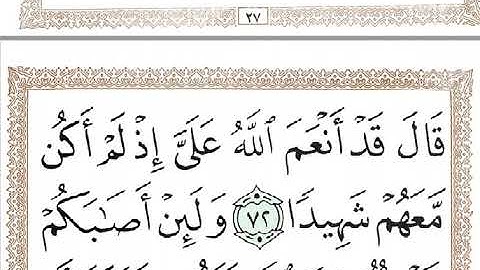 ٢٧
قَالَ قَدْ أَنْعَمَ اللَّهُ عَلَيَّ إِذْ لَمْ أَكُن
مَّعَهُمْ شَهِيدًا ٧٢ وَلَئِنْ أَصَابَكُمْ